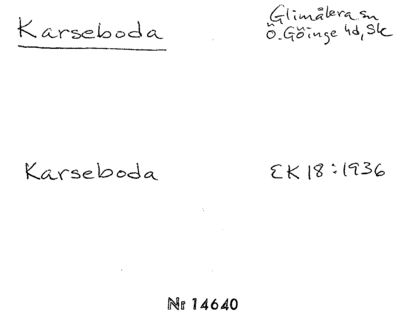 Karseboda
Glimåkra sn
Ö. Göinge hd, Sk
Karseboda
EK 18:1936
Nr 14640